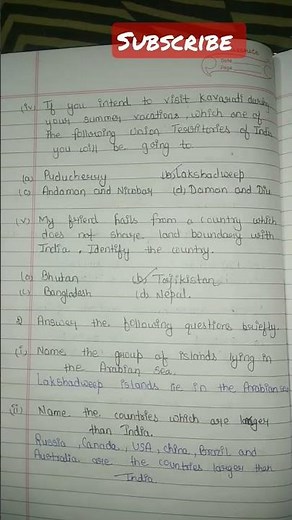 SUBSCRIBE
Date
Page
(iv) If you intend to visit Kavarati during
your summer vacations, which one of
the following Union Territories of India
you will be going to
(a) Puducherry (b) Lakshadweep
(c) Andaman and Nicobar (d) Daman and Diu
(v) My friend hails from a country which
does not share land boundary with
India. Identify the country.
(a) Bhutan (b) Tajikistan
(c) Bangladesh (d) Nepal.
2) Answer the following questions briefly.
(i) Name the group of islands lying in
the Arabian Sea.
Lakshadweep islands lie in the Arabian sea
(ii) Name the countries which are larger
than India.
Russia, Canada, USA, China, Brazil and
Australia are the countries larger than
India